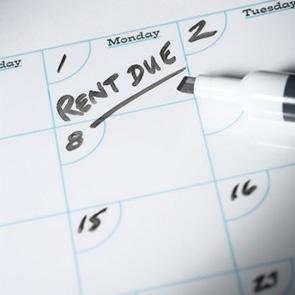 day Monday Tuesday
1 2
RENT DUE
8
15 16
23